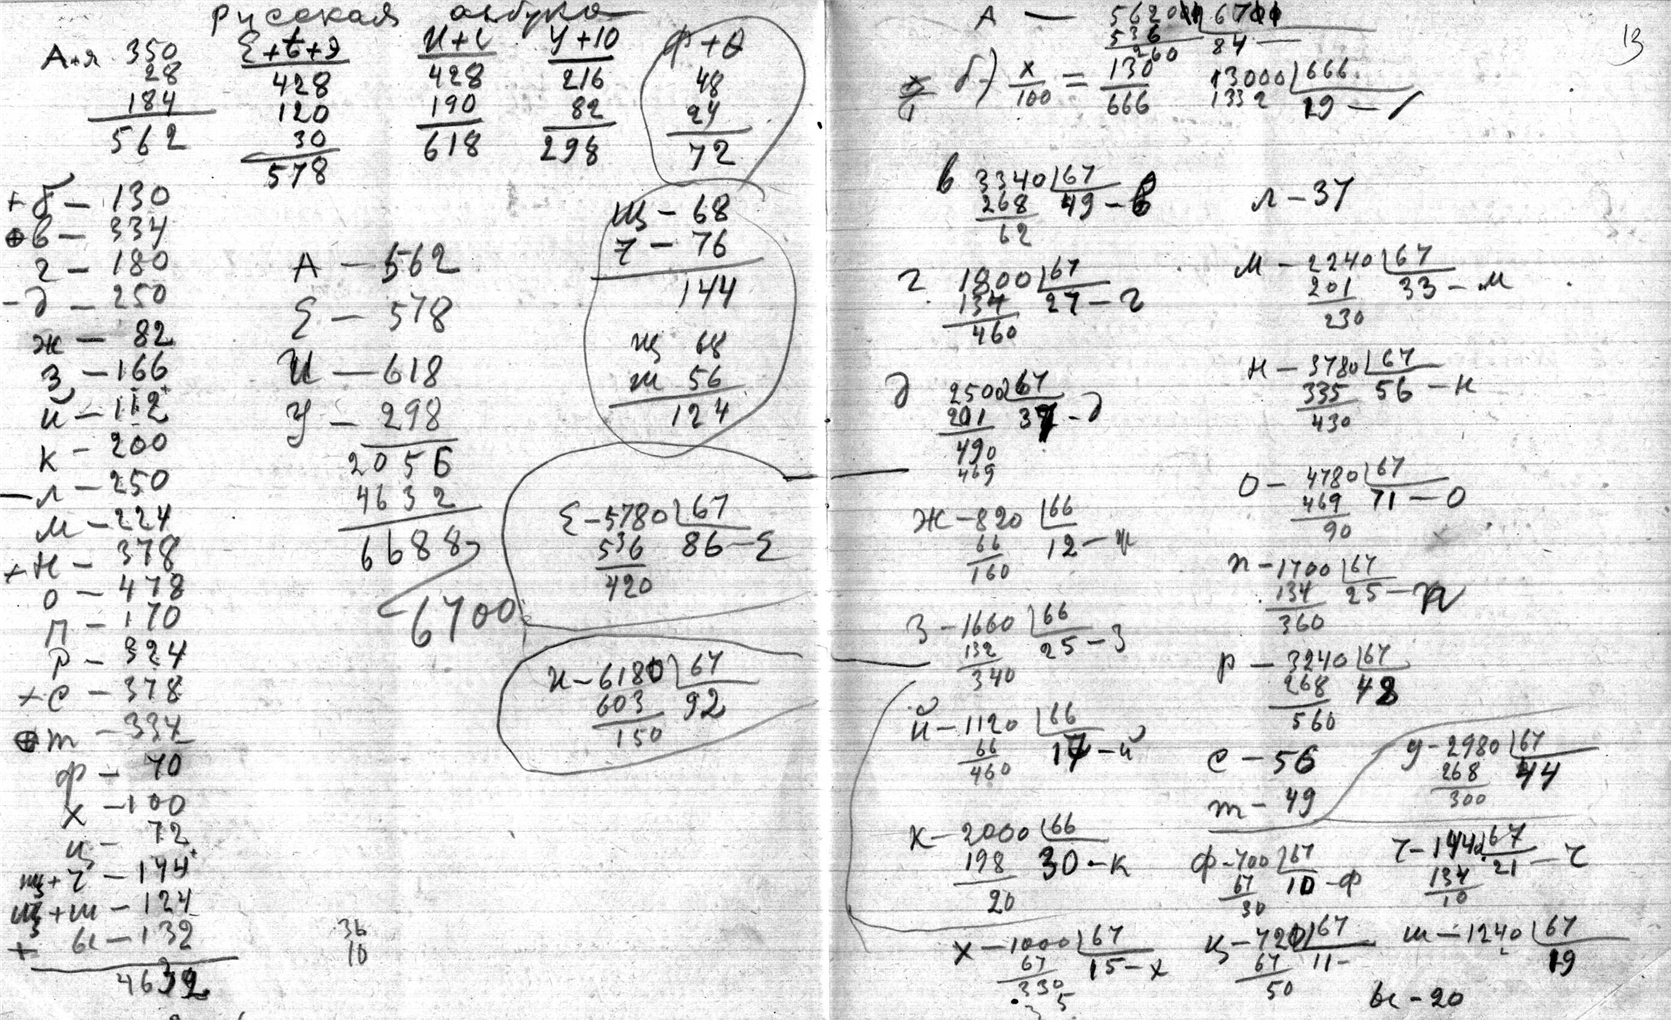 русская азбука
А+я 350
28
184
562
Е+ѣ+э
428
120
30
578
И+i
428
190
618
У+ю
216
82
298
Ф+Ѳ
48
24
72
+б – 130
⊕в – 334
г – 180
-д – 250
ж – 82
З – 166
й – 112
к – 200
– л – 250
м – 224
+н – 378
о – 478
п – 170
р – 324
+с – 378
⊕т – 334
ф – 70
х – 100
ц – 72
щ+ч – 144
щ+ш – 124
+ ы – 132
4632
А – 562
Е – 578
И – 618
У – 298
2056
4632
6688
6700
36
10
щ – 68
ч – 76
144
щ 68
ш 56
124
Е – 5780 67
536 86 – Е
420
и – 6180 67
603 92
150
13
А – 56200 6700
536 84 –
260
б) х/100 = 130/666 13000 666
1332 19 –
в 3340 67
268 49 – в
62
г 1800 67
134 27 – г
460
д 2500 67
201 37 – д
490
469
Ж – 820 66
66 12 – ж
160
З – 1660 66
132 25 – З
340
й – 1120 66
66 17 – й
460
К – 2000 66
198 30 – к
20
х – 1000 67
67 15 – х
330
л – 37
м – 2240 67
201 33 – м
230
н – 3780 67
335 56 – н
430
О – 4780 67
469 71 – О
90
п – 1700 67
134 25 – п
360
р – 3240 67
268 48
560
с – 56
т – 49
у – 2980 67
268 44
300
ф – 700 67
67 10 – ф
30
ч – 1440 67
134 21 – ч
10
ц – 720 67
67 11 –
50
ш – 1240 67
19
ы – 20